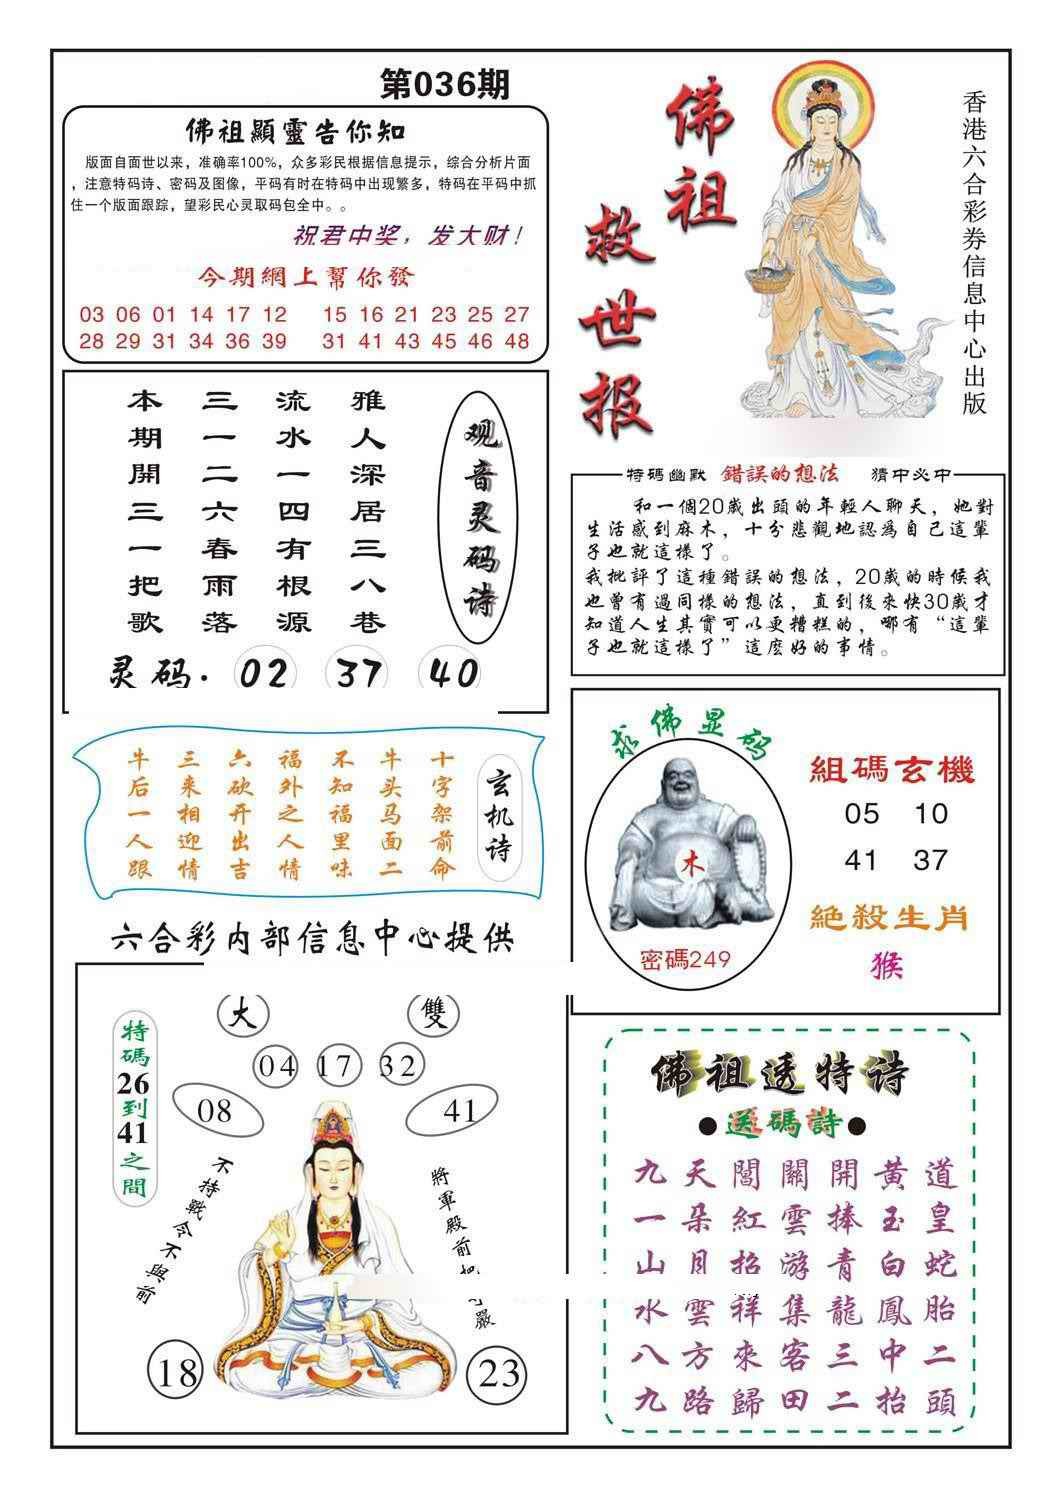 第036期
佛祖顯靈告你知
版面自面世以来，准确率100%，众多彩民根据信息提示，综合分析片面
，注意特码诗、密码及图像，平码有时在特码中出现繁多，特码在平码中抓
住一个版面跟踪，望彩民心灵取码包全中。。
祝君中奖，发大财！
今期網上幫你發
03 06 01 14 17 12 15 16 21 23 25 27
28 29 31 34 36 39 31 41 43 45 46 48
佛祖
救世报
香港六合彩券信息中心出版
观音灵码诗
雅人深居三八巷
流水一四有根源
三一二六春雨落
本期開三一把歌
灵码. 02 37 40
特碼幽默 錯誤的想法 猜中必中
和一個20歲出頭的年輕人聊天，她對
生活感到麻木，十分悲觀地認爲自己這輩
子也就這樣了。
我批評了這種錯誤的想法，20歲的時候我
也曾有過同樣的想法，直到後來快30歲才
知道人生其實可以更糟糕的，哪有“這輩
子也就這樣了”這麽好的事情。
玄机诗
十字架前命
牛头马面二
不知福里味
福外之人情
六砍开出吉
三来相迎情
牛后一人跟
求佛显码
木
密碼249
組碼玄機
05 10
41 37
絶殺生肖
猴
六合彩内部信息中心提供
特碼26到41之間
大 雙
04 17 32
08 41
不持戰令不與前
將軍殿前把 嚴
18 23
佛祖透特诗
●送碼詩●
九天閶關開黄道
一朵紅雲捧玉皇
山月招游青白蛇
水雲祥集龍鳳胎
八方來客三中二
九路歸田二抬頭